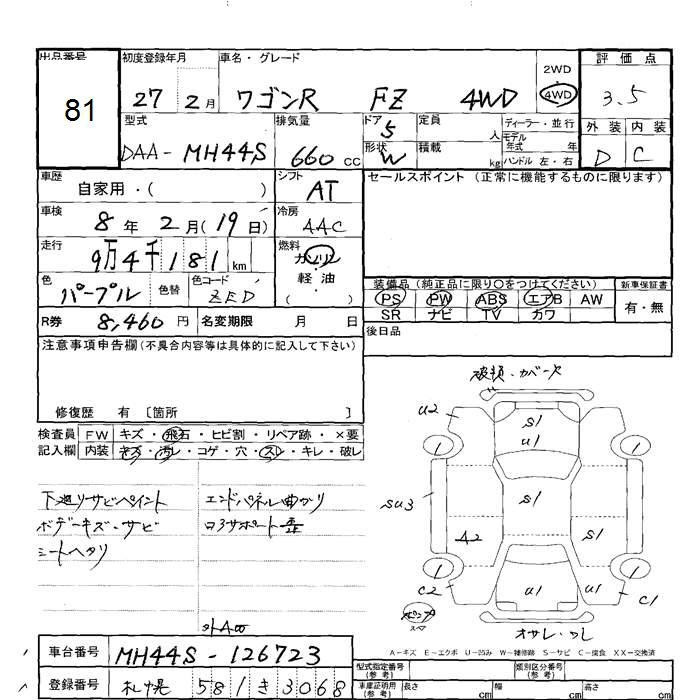 出品番号 81
初度登録年月 27 2月
車名・グレード ワゴンR FZ 4WD
2WD
4WD
評価点 3.5
外装 D 内装 C
型式 DAA-MH44S
排気量 660 cc
ドア 5
形状 W
定員 人
積載 kg
ディーラー・並行
モデル年式 年
ハンドル 左・右
車歴 自家用・( )
シフト AT
セールスポイント (正常に機能するものに限ります)
車検 8年 2月(19日)
冷房 AAC
走行 9万4千181 km
燃料 ガソリン
軽・油
( )
色 パープル 色替
色コード ZED
装備品 (純正品に限り○をつけてください)
新車保証書
PS PW ABS エアB AW
SR ナビ TV カワ
有・無
R券 8,460 円 名変期限 月 日
後日品
注意事項申告欄 (不具合内容等は具体的に記入して下さい)
修復歴 有 〔箇所 〕
検査員 FW キズ・飛石・ヒビ割・リペア跡・×要
記入欄 内装 キズ・汚レ・コゲ・穴・スレ・キレ・破レ
下廻りサビペイント
ボデーキズ・サビ
シートヘタリ
エンドパネル曲がり
ロアサポート歪
破損・カバーケ
U2
S1
U1
1
1
SU3
S1
A2
S1
1
1
C2
U1
U1
C1
オサレ・ワレ
A-キズ E-エクボ U-凹み W-補修跡 S-サビ C-腐食 XX-交換済
車台番号 MH44S-126723
登録番号 札幌 581 き 3068
型式指定番号 (参考)
類別区分番号 (参考)
車庫証明用 (参考) 長さ cm 幅 cm 高さ cm